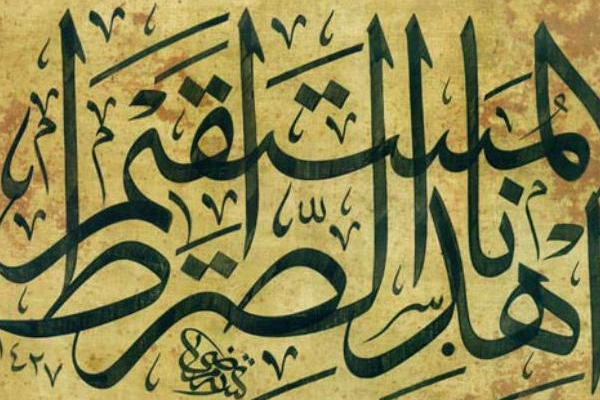 اهدنا الصراط
المستقيم
١٤٢٧